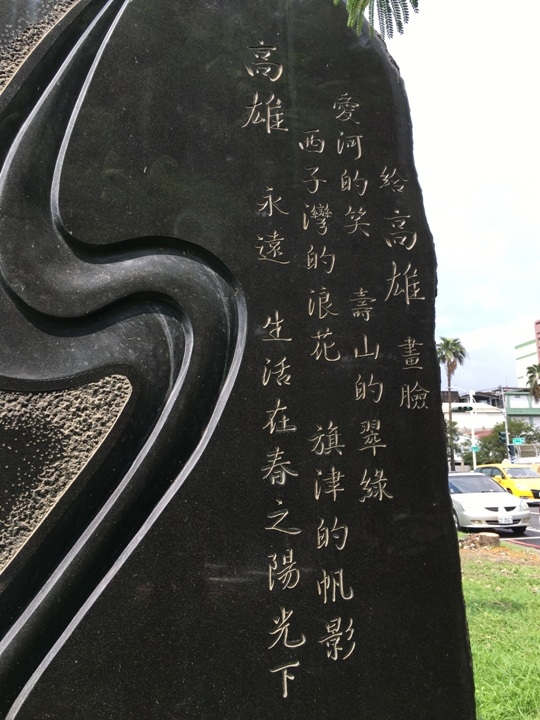 給高雄 畫臉
愛河的笑 壽山的翠綠
西子灣的浪花 旗津的帆影
高雄 永遠 生活在春之陽光下